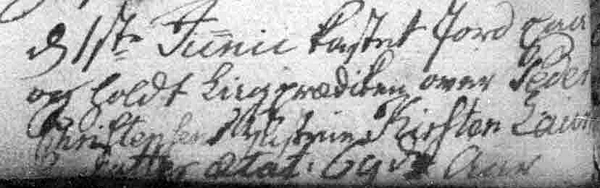 d 1ste Junii kastet Jord paa
og holdt Liigprædiken over Peder
Christensens Hustrue Kirsten Laur
datter ætat: 69 Aar